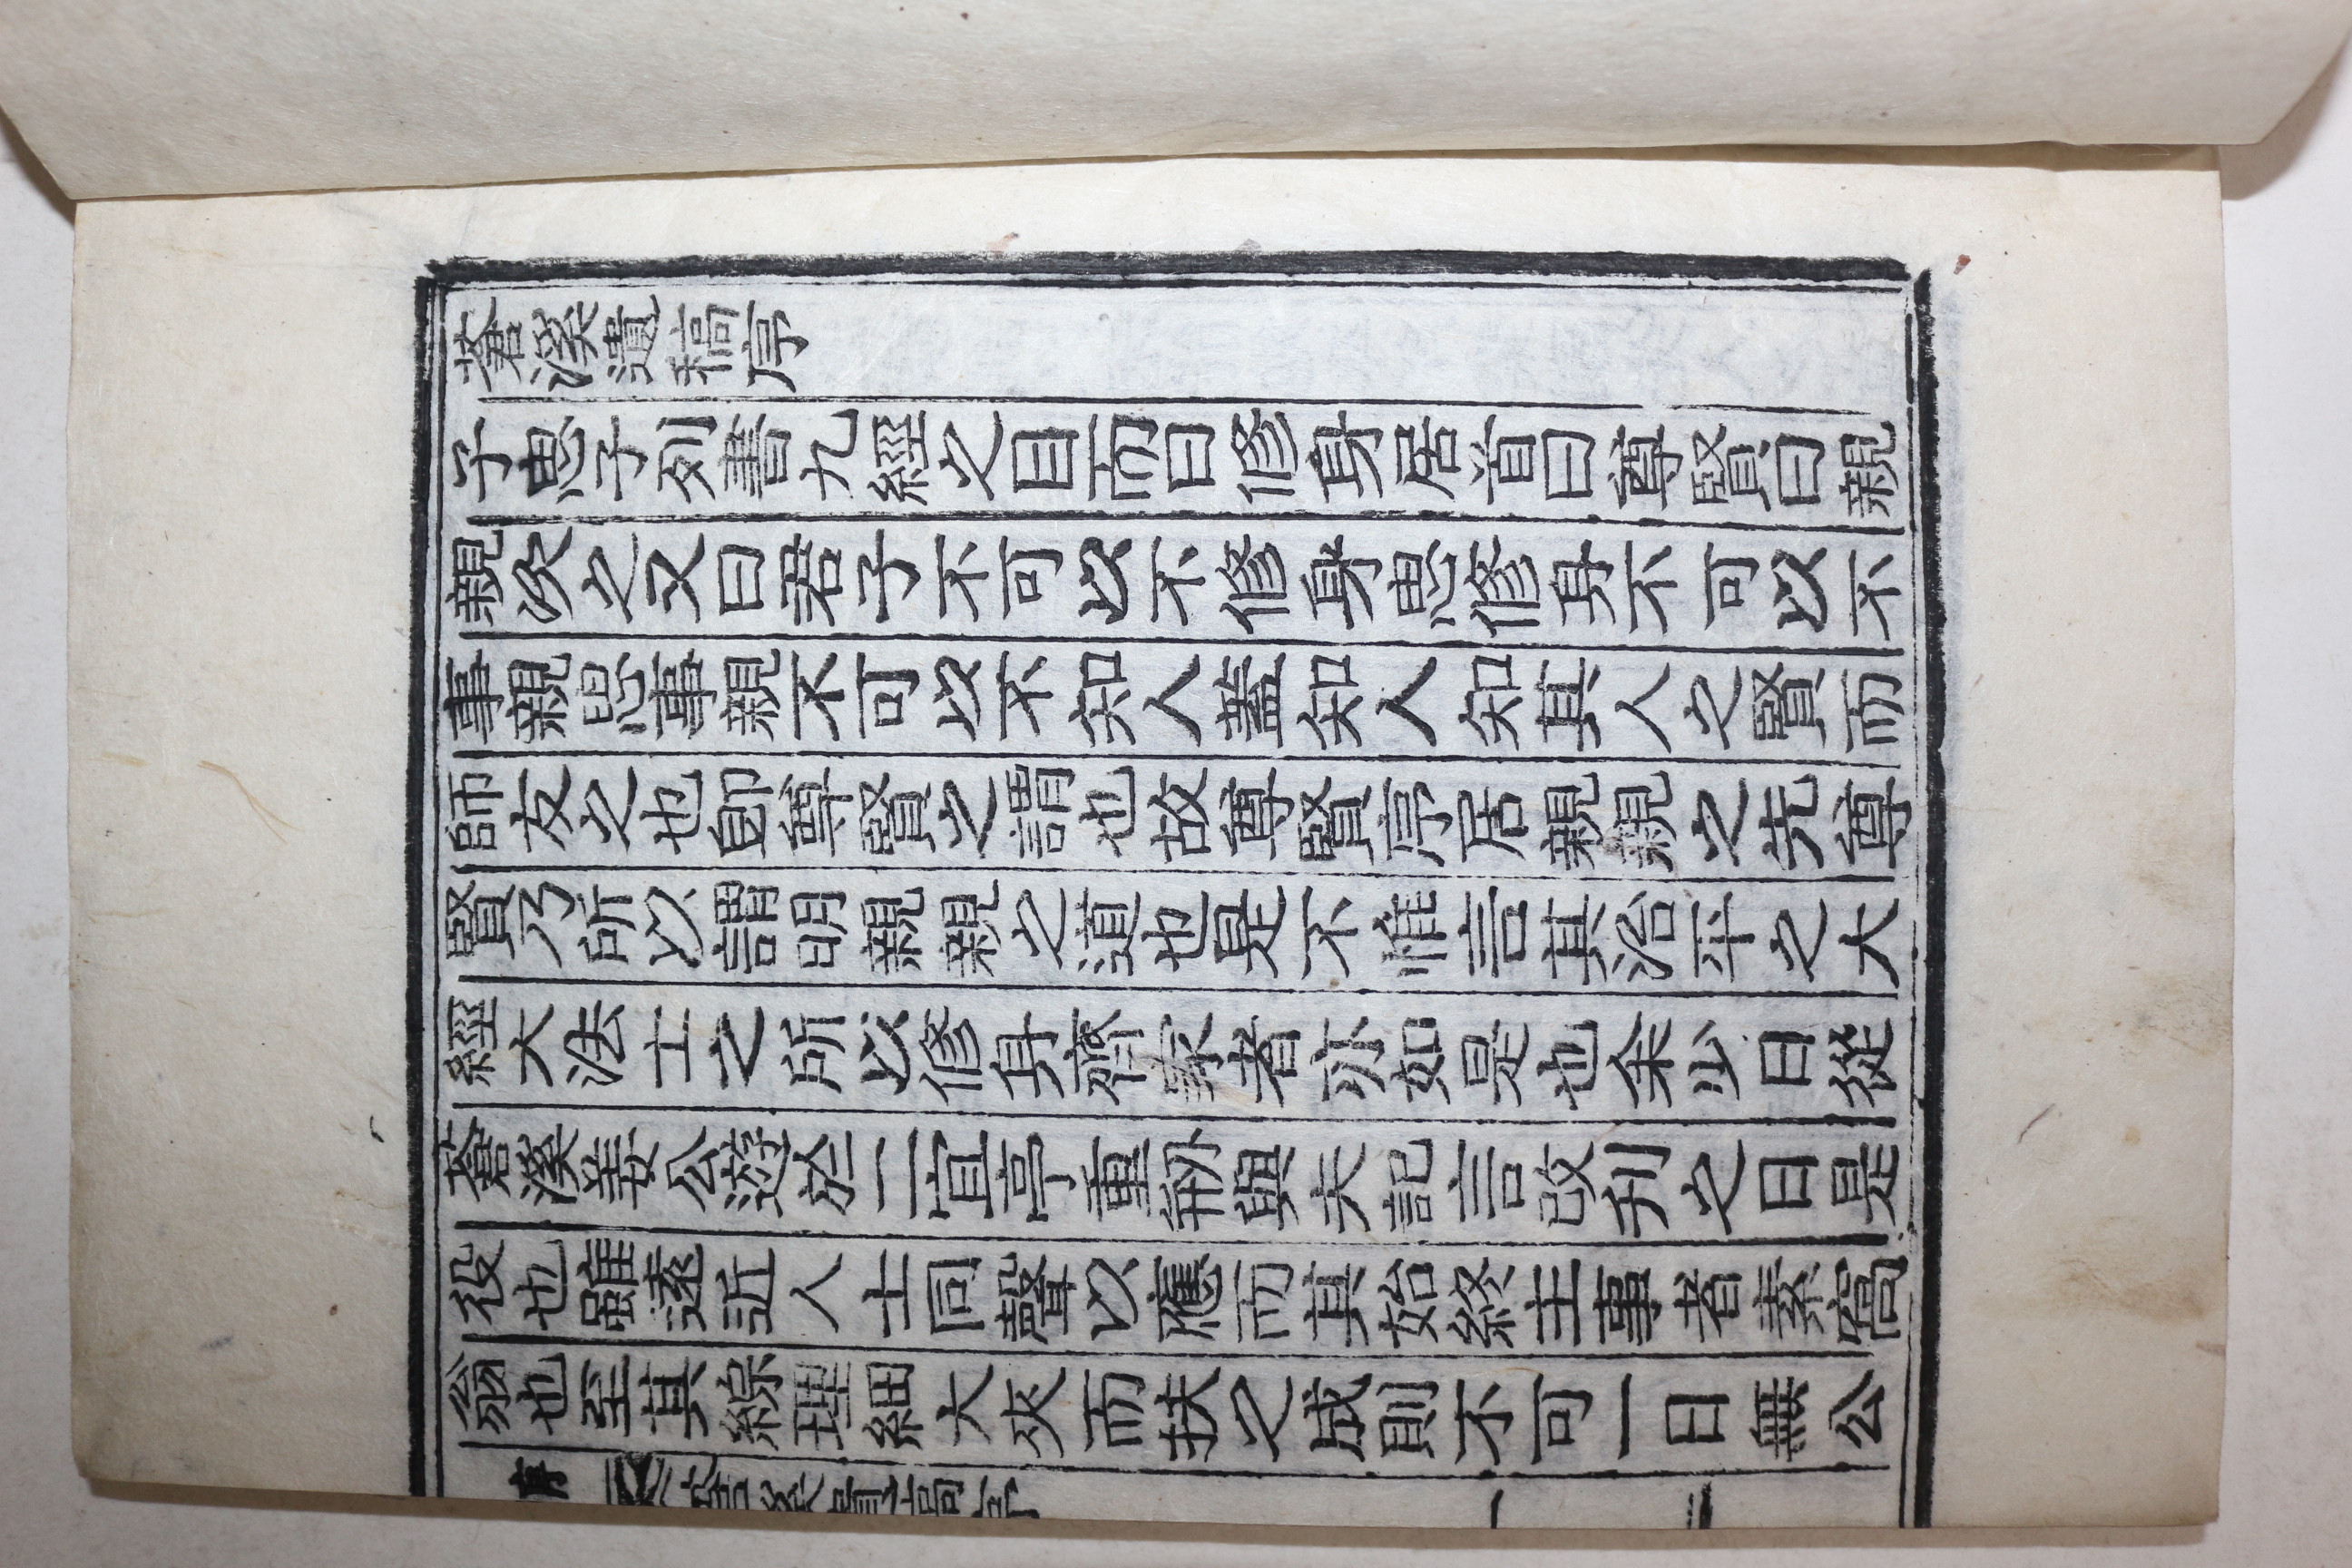 蒼溪遺稿序
子思子列書九經之目而曰修身居首曰尊賢曰親
親次之又曰君子不可以不修身思修身不可以不
事親思事親不可以不知人蓋知人知其人之賢而
師友之也卽尊賢之謂也故尊賢序居親親之先尊
賢乃所以謂明親親之道也是不惟言其治平之大
經大法士之所以修身齊家者亦如是也余少日從
蒼溪姜公遊於二宜亭重剏與夫記言改刋之日是
役也雖遠近人士同聲以應而其始終主事者素窩
翁也至其綜理細大夾而扶之成則不可一日無公
蒼溪遺稿序